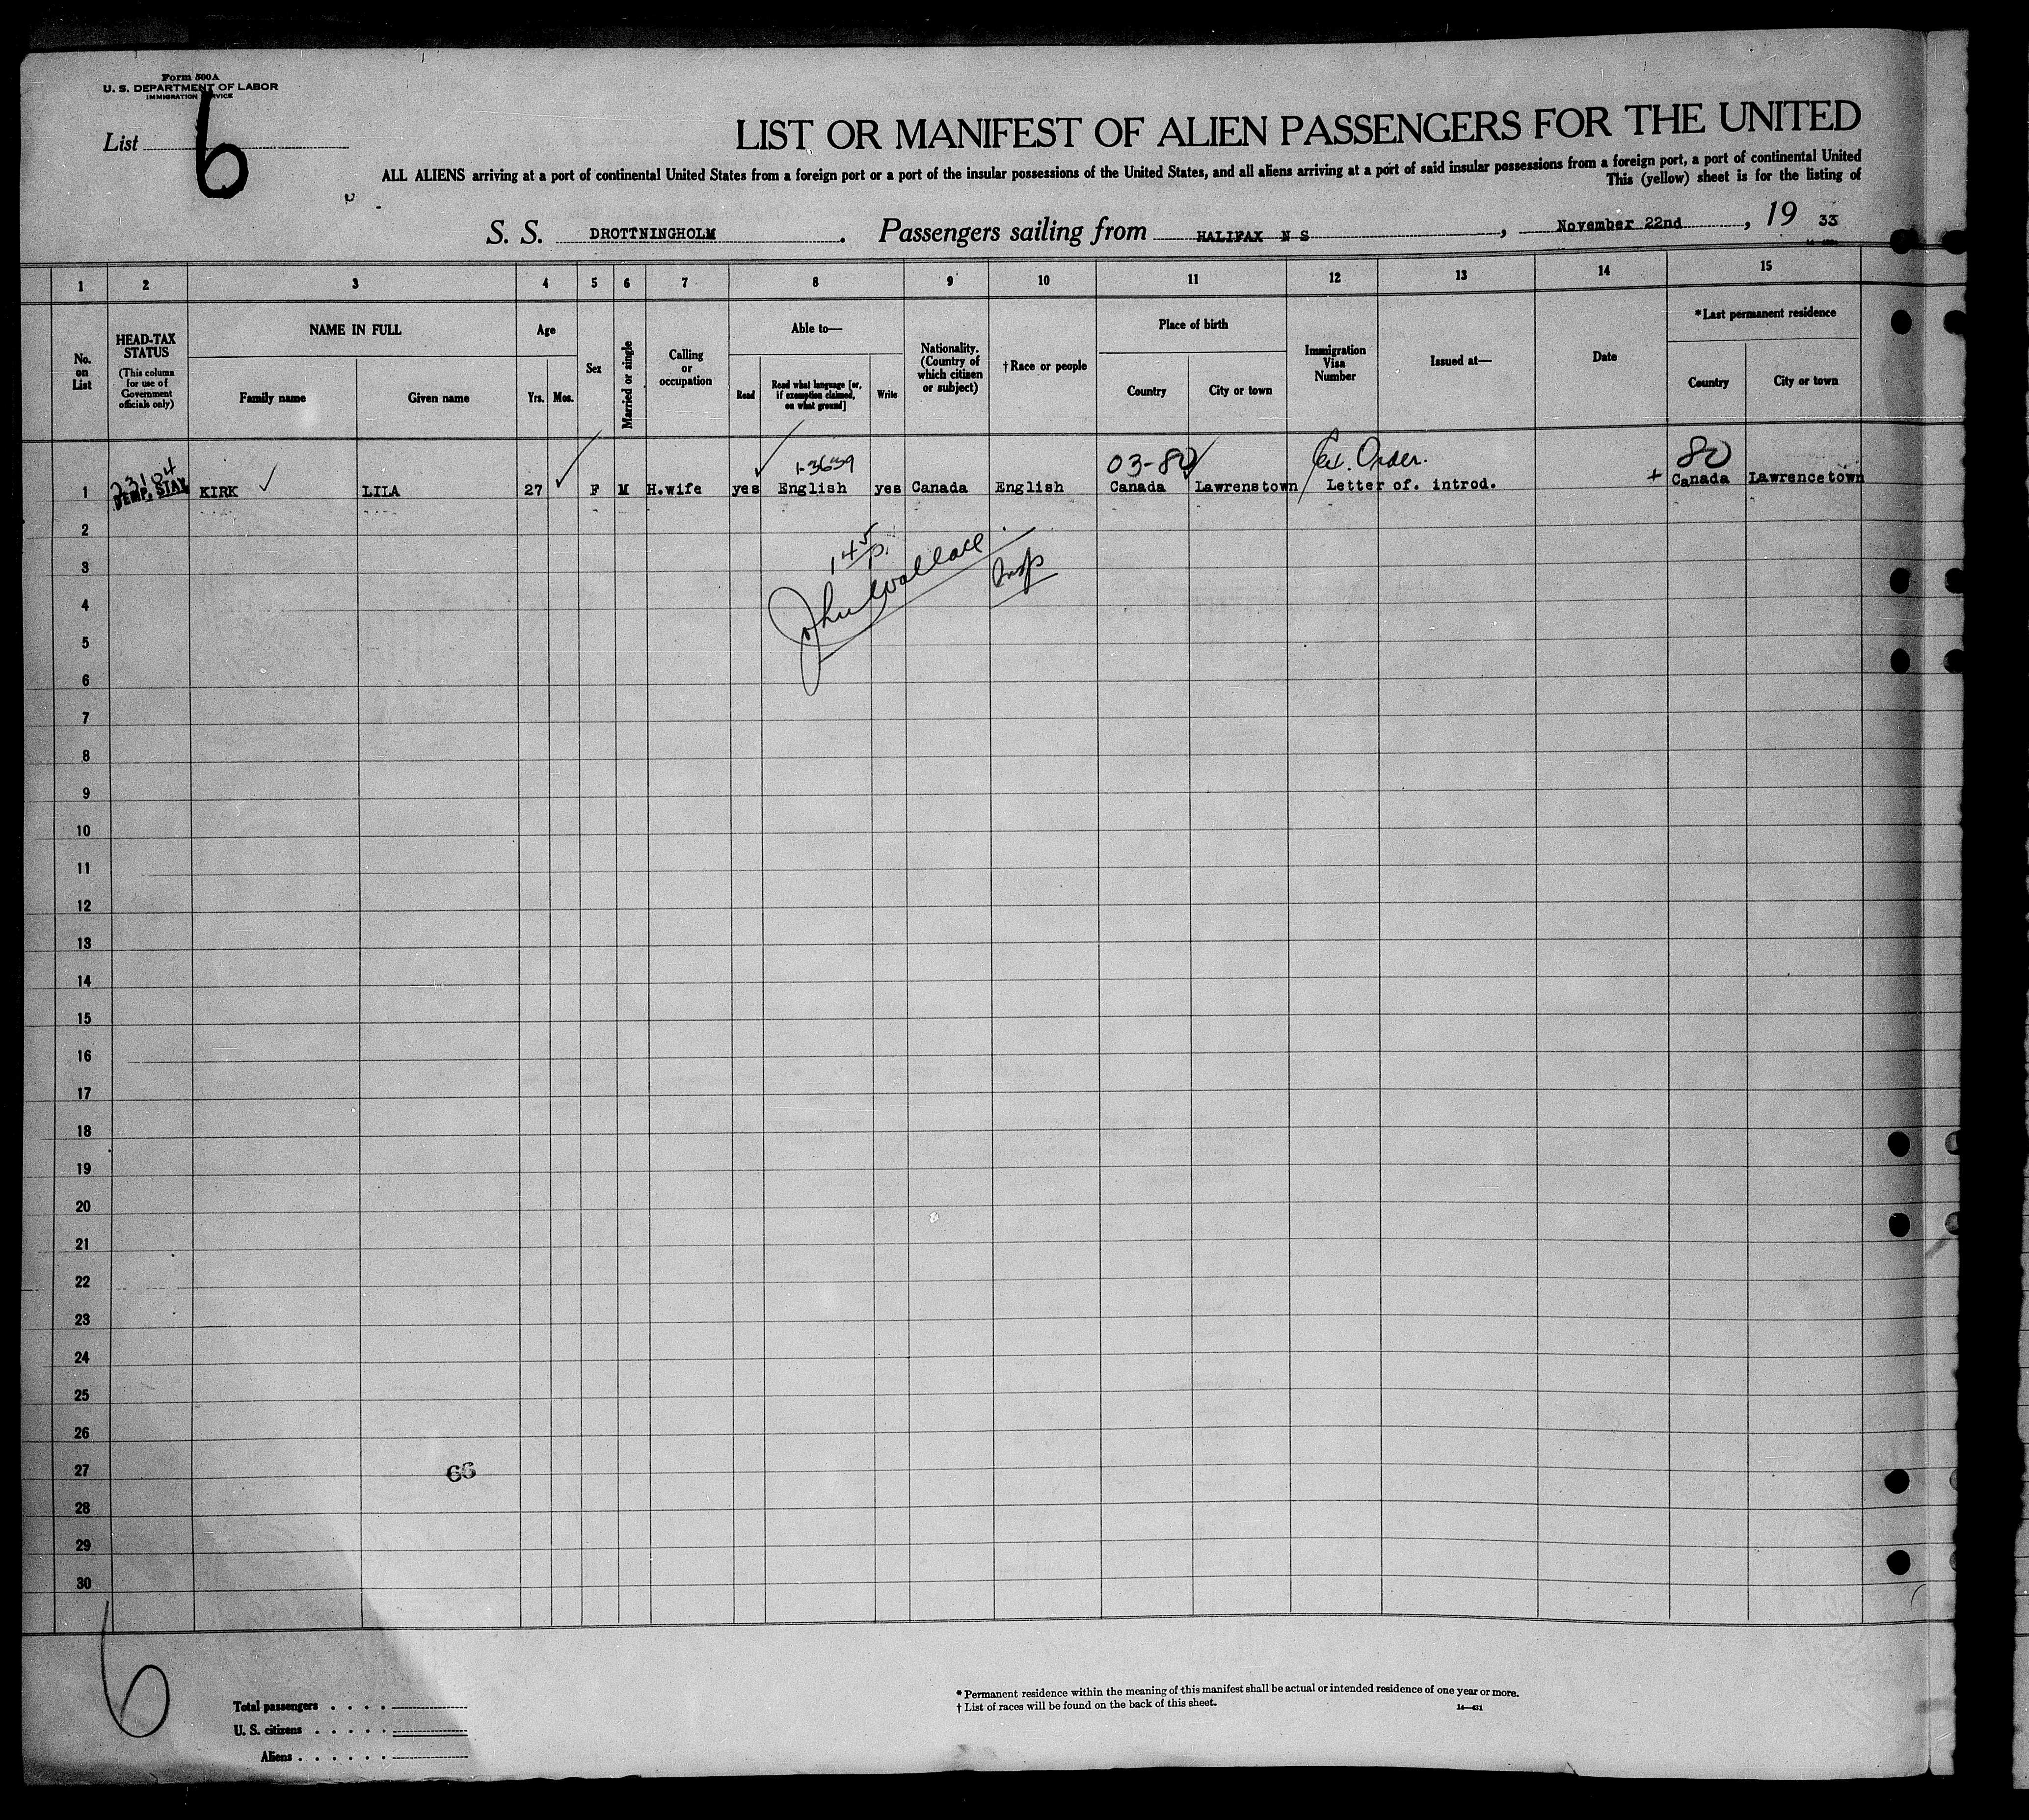 Form 500A
U. S. DEPARTMENT OF LABOR
IMMIGRATION SERVICE
List 6
LIST OR MANIFEST OF ALIEN PASSENGERS FOR THE UNITED
ALL ALIENS arriving at a port of continental United States from a foreign port or a port of the insular possessions of the United States, and all aliens arriving at a port of said insular possessions from a foreign port, a port of continental United
This (yellow) sheet is for the listing of
S. S. DROTTNINGHOLM. Passengers sailing from HALIFAX N S, November 22nd, 19 33
1 2 3 4 5 6 7 8 9 10 11 12 13 14 15
No. on List
HEAD-TAX STATUS
(This column for use of Government officials only)
NAME IN FULL
Family name
Given name
Age
Yrs. Mos.
Sex
Married or single
Calling or occupation
Able to—
Read
Read what language [or, if exemption claimed, on what ground]
Write
Nationality. (Country of which citizen or subject)
†Race or people
Place of birth
Country
City or town
Immigration Visa Number
Issued at—
Date
*Last permanent residence
Country
City or town
1-3639
03-80
Ex. Order.
80
1 TEMP. STAY KIRK LILA 27 F M H.wife yes English yes Canada English Canada Lawrenstown Letter of. introd. + Canada Lawrencetown
2
145 p.
3
John Wallace Insp
4
5
6
7
8
9
10
11
12
13
14
15
16
17
18
19
20
21
22
23
24
25
26
27
66
28
29
30
6
Total passengers
U. S. citizens
Aliens
* Permanent residence within the meaning of this manifest shall be actual or intended residence of one year or more.
† List of races will be found on the back of this sheet.